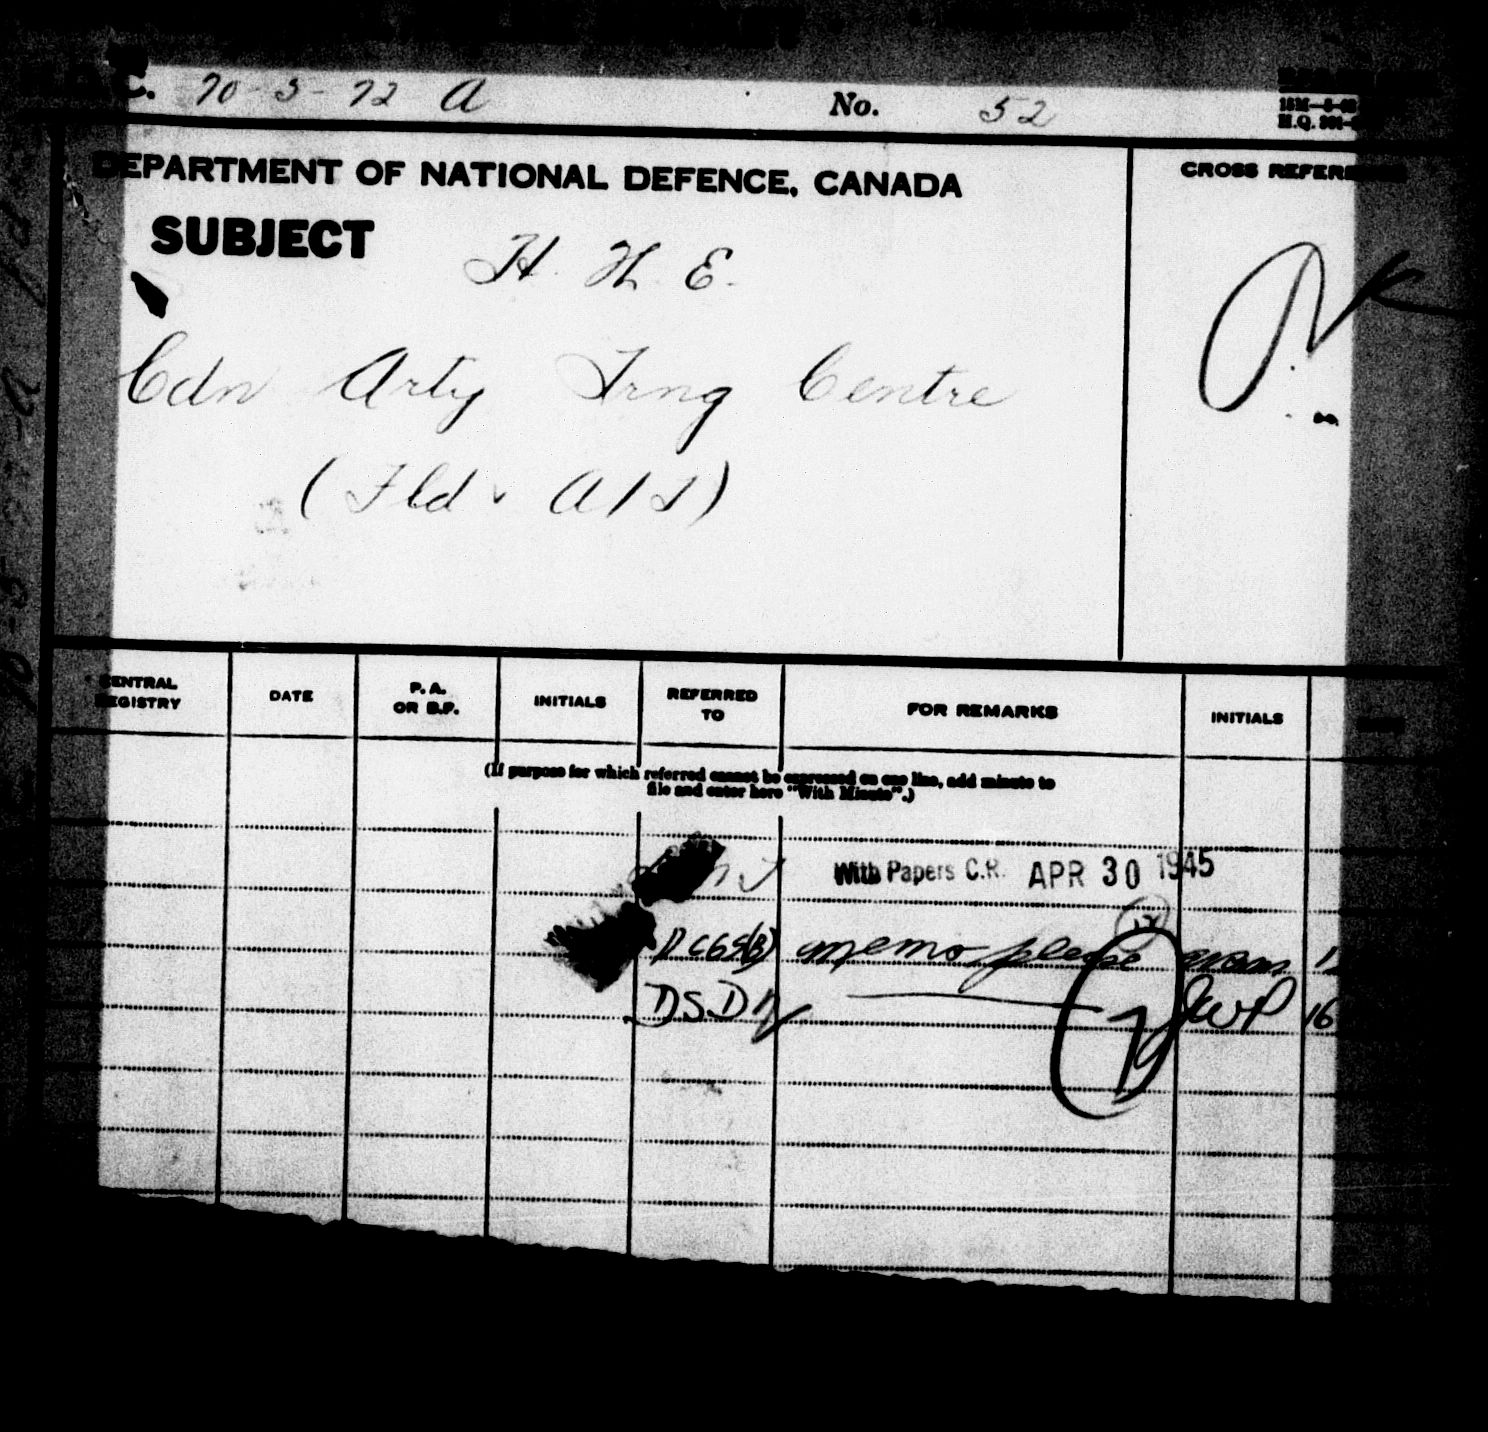 C. 70-5-72 A No. 52
DEPARTMENT OF NATIONAL DEFENCE, CANADA
CROSS REFERENCE
SUBJECT
H. H. E.
Cdn Arty Trng Centre
(Fld
CENTRAL REGISTRY
DATE
P. A. OR B.F.
INITIALS
REFERRED TO
FOR REMARKS
INITIALS
(If purpose for which referred cannot be expressed on one line, add minute to
file and enter here "With Minute".)
With Papers C.R. APR 30 1945
memo please
DSD JWP 16